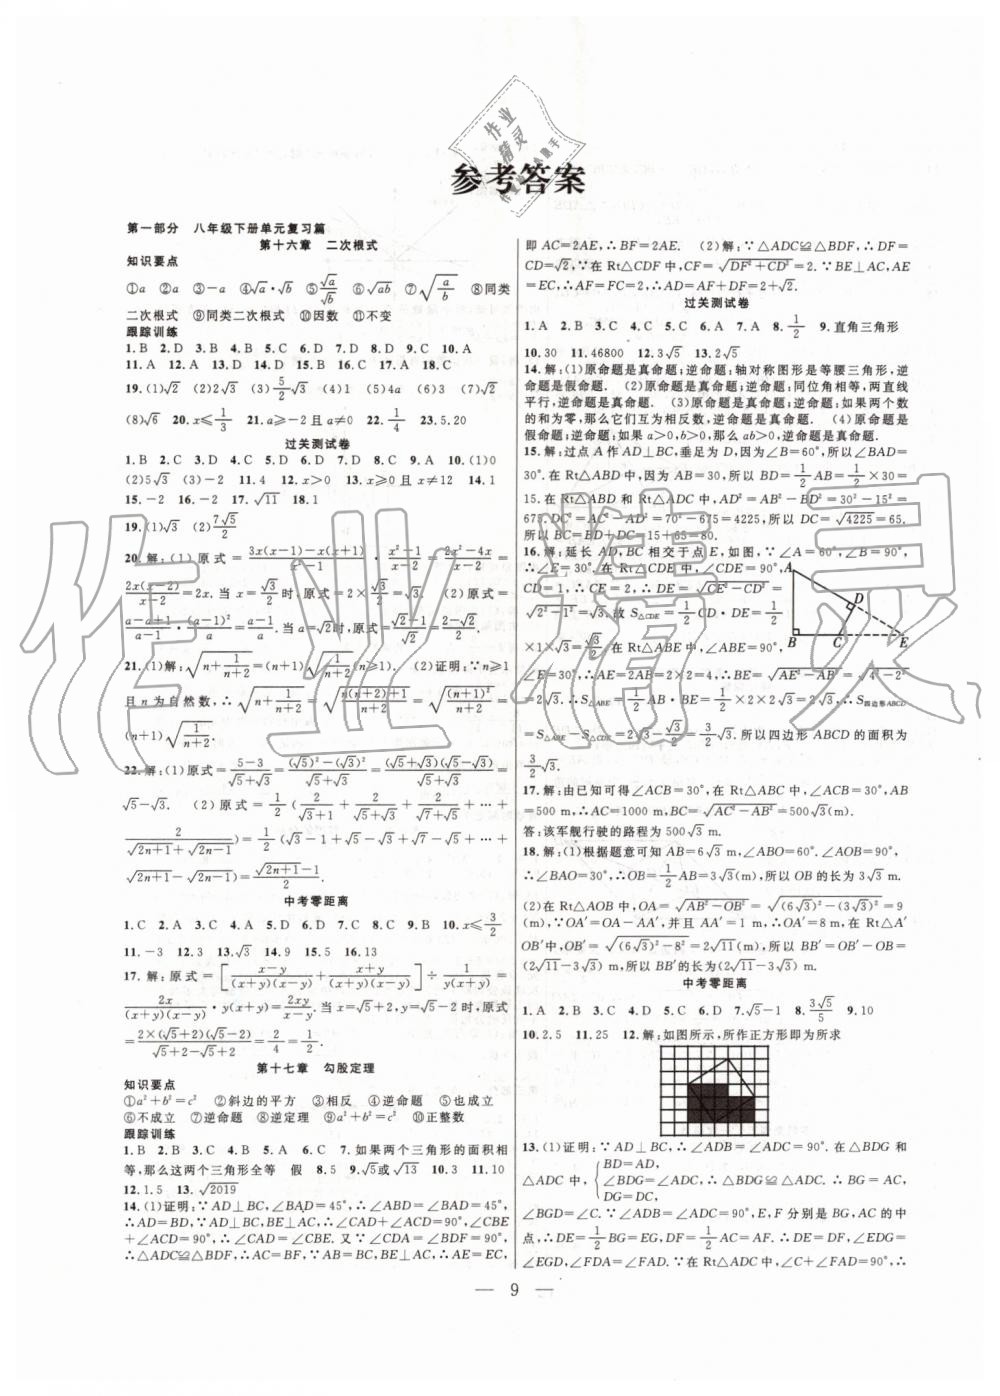 参考答案
第一部分 八年级下册单元复习篇
第十六章 二次根式
知识要点
①a ②a ③-a ④√a·√b ⑤√a/√b ⑥√(ab) ⑦√(a/b) ⑧同类
二次根式 ⑨同类二次根式 ⑩因数 ⑪不变
跟踪训练
1.B 2.D 3.B 4.B 5.C 6.D 7.D 8.C 9.D 10.A
11.A 12.A 13.D 14.D 15.B 16.C 17.A 18.C
19.(1)√2 (2)2√3 (3)5/2√3 (4)1 (5)4a (6)2√3 (7)√2
(8)√6 20.x≤1/3 21.a≥-2且a≠0 22.1/4 23.5.20
过关测试卷
1.B 2.C 3.D 4.B 5.C 6.A 7.A 8.C 9.A 10.(1)0
(2)5√3 (3)-4 12.x>0 13.x≥0且x≠12 14.1
15.-2 16.-2 17.√11 18.1
19.(1)√3 (2)7√5/2
20.解:(1)原式=3x(x-1)-x(x+1)/x-1·x²-1/x=2x²-4x/x-2=
2x(x-2)/x-2=2x.当x=√3/2时,原式=2×√3/2=√3. (2)原式=
a-a+1/a-1·(a-1)²/a=a-1/a.当a=√2时,原式=√2-1/√2=2-√2/2.
21.(1)解:√(n+1/(n+2))=(n+1)√(1/(n+2))(n≥1). (2)证明:∵n≥1
且n为自然数,∴√(n+1/(n+2))=√((n(n+2)+1)/(n+2))=√((n+1)²/(n+2))=
(n+1)√(1/(n+2)).
22.解:(1)原式=5-3/(√5+√3)=((√5)²-(√3)²)/(√5+√3)=(√5+√3)(√5-√3)/(√5+√3)
=√5-√3. (2)原式=1/2(2/(√3+1)+2/(√5+√3)+2/(√7+√5)+…+
2/(√(2n+1)+√(2n-1)))=1/2(√3-1+√5-√3+√7-√5+…+
√(2n+1)-√(2n-1))=(√(2n+1)-1)/2.
中考零距离
1.C 2.A 3.D 4.B 5.D 6.A 7.D 8.C 9.B 10.x≤3/2
11.-3 12.3 13.√3 14.9 15.5 16.13
17.解:原式=[x-y/(x+y)(x-y)+x+y/(x+y)(x-y)]÷1/y(x+y)=
2x/(x+y)(x-y)·y(x+y)=2xy/x-y.当x=√5+2,y=√5-2时,原式=
2×(√5+2)(√5-2)/(√5+2-√5+2)=2/4=1/2.
第十七章 勾股定理
知识要点
①a²+b²=c² ②斜边的平方 ③相反 ④逆命题 ⑤也成立
⑥不成立 ⑦逆命题 ⑧逆定理 ⑨a²+b²=c² ⑩正整数
跟踪训练
1.B 2.B 3.C 4.B 5.A 6.C 7.如果两个三角形的面积相
等,那么这两个三角形全等 假 8.5 9.√5或√13 10.3 11.10
12.1.5 13.√2019
14.(1)证明:∵AD⊥BC,∠BAD=45°,∴∠ABD=∠BAD=45°,
∴AD=BD,∵AD⊥BC,BE⊥AC,∴∠CAD+∠ACD=90°,∠CBE
+∠ACD=90°,∴∠CAD=∠CBE.又∵∠CDA=∠BDF=90°,
∴△ADC≌△BDF,∴AC=BF,∵AB=BC,BE⊥AC,∴AE=EC,
即AC=2AE,∴BF=2AE. (2)解:∵△ADC≌△BDF,∴DF=
CD=√2,∵在Rt△CDF中,CF=√(DF²+CD²)=2,∵BE⊥AC,AE
=EC,∴AF=FC=2,∴AD=AF+DF=2+√2.
过关测试卷
1.A 2.B 3.C 4.C 5.B 6.A 7.A 8.1/2 9.直角三角形
10.30 11.46800 12.3√5 13.2√5
14.解:(1)原命题是真命题;逆命题:轴对称图形是等腰三角形,逆
命题是假命题. (2)原命题是真命题;逆命题:同位角相等,两直线
平行,逆命题是真命题. (3)原命题是真命题;逆命题:如果两个数
的和为零,那么它们互为相反数,逆命题是真命题. (4)原命题是
假命题;逆命题:如果a>0,b>0,那么ab>0,逆命题是真命题.
15.解:过点A作AD⊥BC,垂足为D,因为∠B=60°,所以∠BAD=
30°.在Rt△ABD中,因为AB=30,所以BD=1/2AB=1/2×30=
15.在Rt△ABD和Rt△ADC中,AD²=AB²-BD²=30²-15²=
675,DC²=AC²-AD²=70²-675=4225,所以DC=√4225=65.
所以BC=BD+DC=15+65=80.
16.解:延长AD,BC相交于点E,如图,∵∠A=60°,∠B=90°,
∴∠E=30°.在Rt△CDE中,∠CDE=90°,
CD=1,∴CE=2,∴DE=√(CE²-CD²)=
√(2²-1²)=√3.故S△CDE=1/2CD·DE=1/2
×1×√3=√3/2.在Rt△ABE中,∠ABE=90°,
∠E=30°,∴AE=2AB=2×2=4,∴BE=√(AE²-AB²)=√(4²-2²)
=2√3.∴S△ABE=1/2AB·BE=1/2×2×2√3=2√3,∴S四边形ABCD
=S△ABE-S△CDE=2√3-√3/2=3/2√3.所以四边形ABCD的面积为
3/2√3.
A
D
B
C
E
17.解:由已知可得∠ACB=30°,在Rt△ABC中,∠ACB=30°,AB
=500 m,∴AC=1000 m,BC=√(AC²-AB²)=500√3 m.
答:该军舰行驶的路程为500√3 m.
18.解:(1)根据题意可知AB=6√3 m,∠ABO=60°.∠AOB=90°,
∴∠BAO=30°,∴OB=1/2AB=3√3(m),所以OB的长为3√3 m.
(2)在Rt△AOB中,OA=√(AB²-OB²)=√((6√3)²-(3√3)²)=9
(m),∵OA′=OA-AA′,并且AA′=1 m,∴OA′=8 m,在Rt△A′
OB′中,OB′=√((6√3)²-8²)=2√11(m),所以BB′=OB′-OB=
(2√11-3√3)m,所以BB′的长为(2√11-3√3)m.
中考零距离
1.A 2.A 3.D 4.C 5.D 6.D 7.√5-1 8.3√5/5 9.10
10.2.5 11.25 12.解:如图所示,所作正方形即为所求
13.(1)证明:∵AD⊥BC,∴∠ADB=∠ADC=90°.在△BDG和
△ADC中,{BD=AD,
∠BDG=∠ADC,
DG=DC,
∴△BDG≌△ADC.∴BG=AC,
∠BGD=∠C.∵∠BDG=∠ADC=90°,E,F分别是BG,AC的中
点,∴DE=1/2BG=EG,DF=1/2AC=AF.∴DE=DF,∠EDG=
∠EGD,∠FDA=∠FAD.∵在Rt△ADC中,∠C+∠FAD=90°,∴
— 9 —
作业精灵